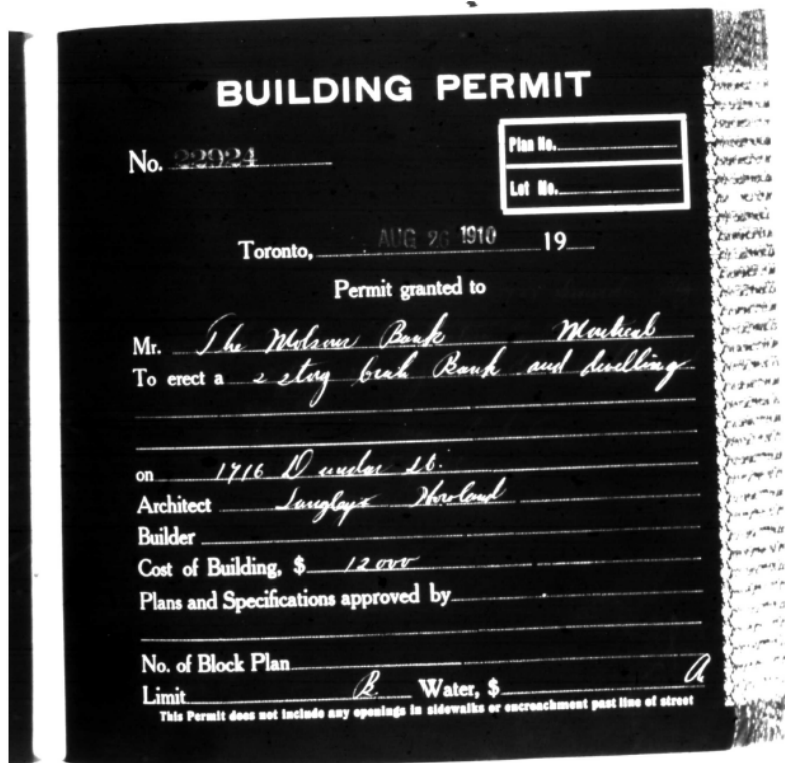 BUILDING PERMIT
No. 22924
Plan No.
Lot No.
Toronto, AUG 26 1910 19
Permit granted to
Mr. The Molsons Bank Montreal
To erect a 2 story brick Bank and dwelling
on 1716 Dundas St.
Architect Langley & Howland
Builder
Cost of Building, $ 12000
Plans and Specifications approved by
No. of Block Plan
Limit B. Water, $ A
This Permit does not include any openings in sidewalks or encroachment past line of street